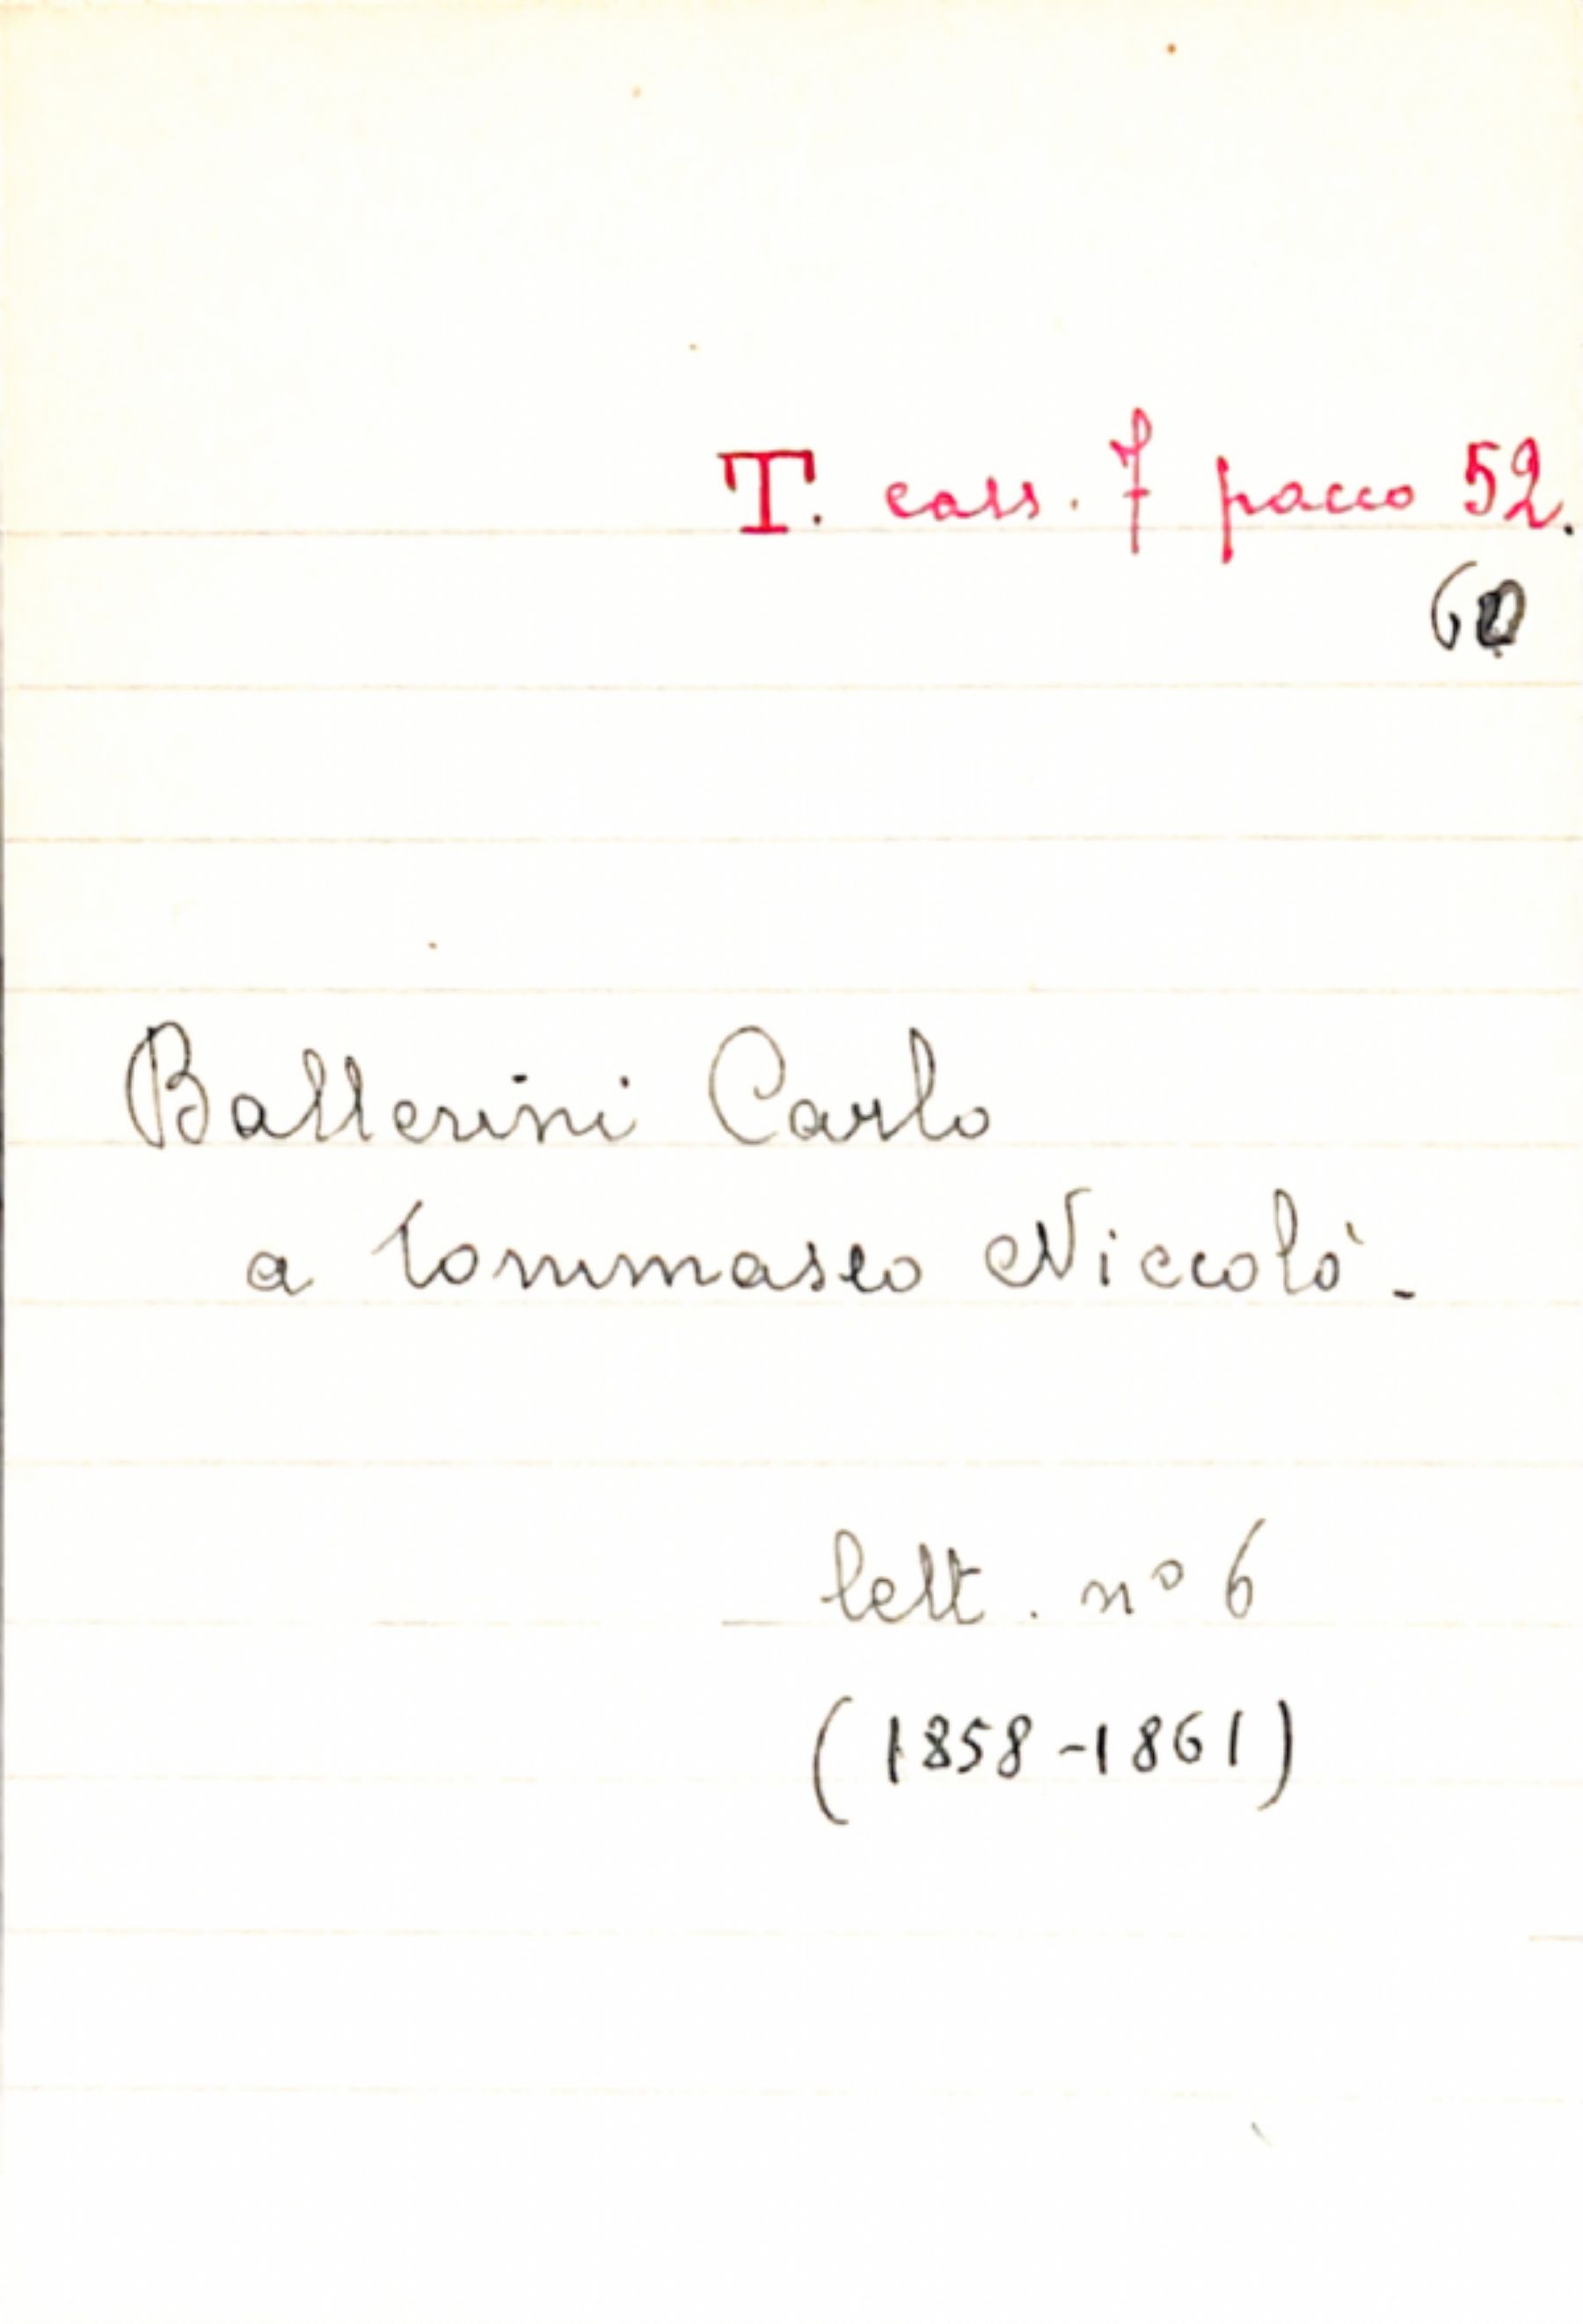 T. cass. 7 pacco 52.
60
Ballerini Carlo
a Tommaseo Niccolò -
lett. n° 6
(1858-1861)